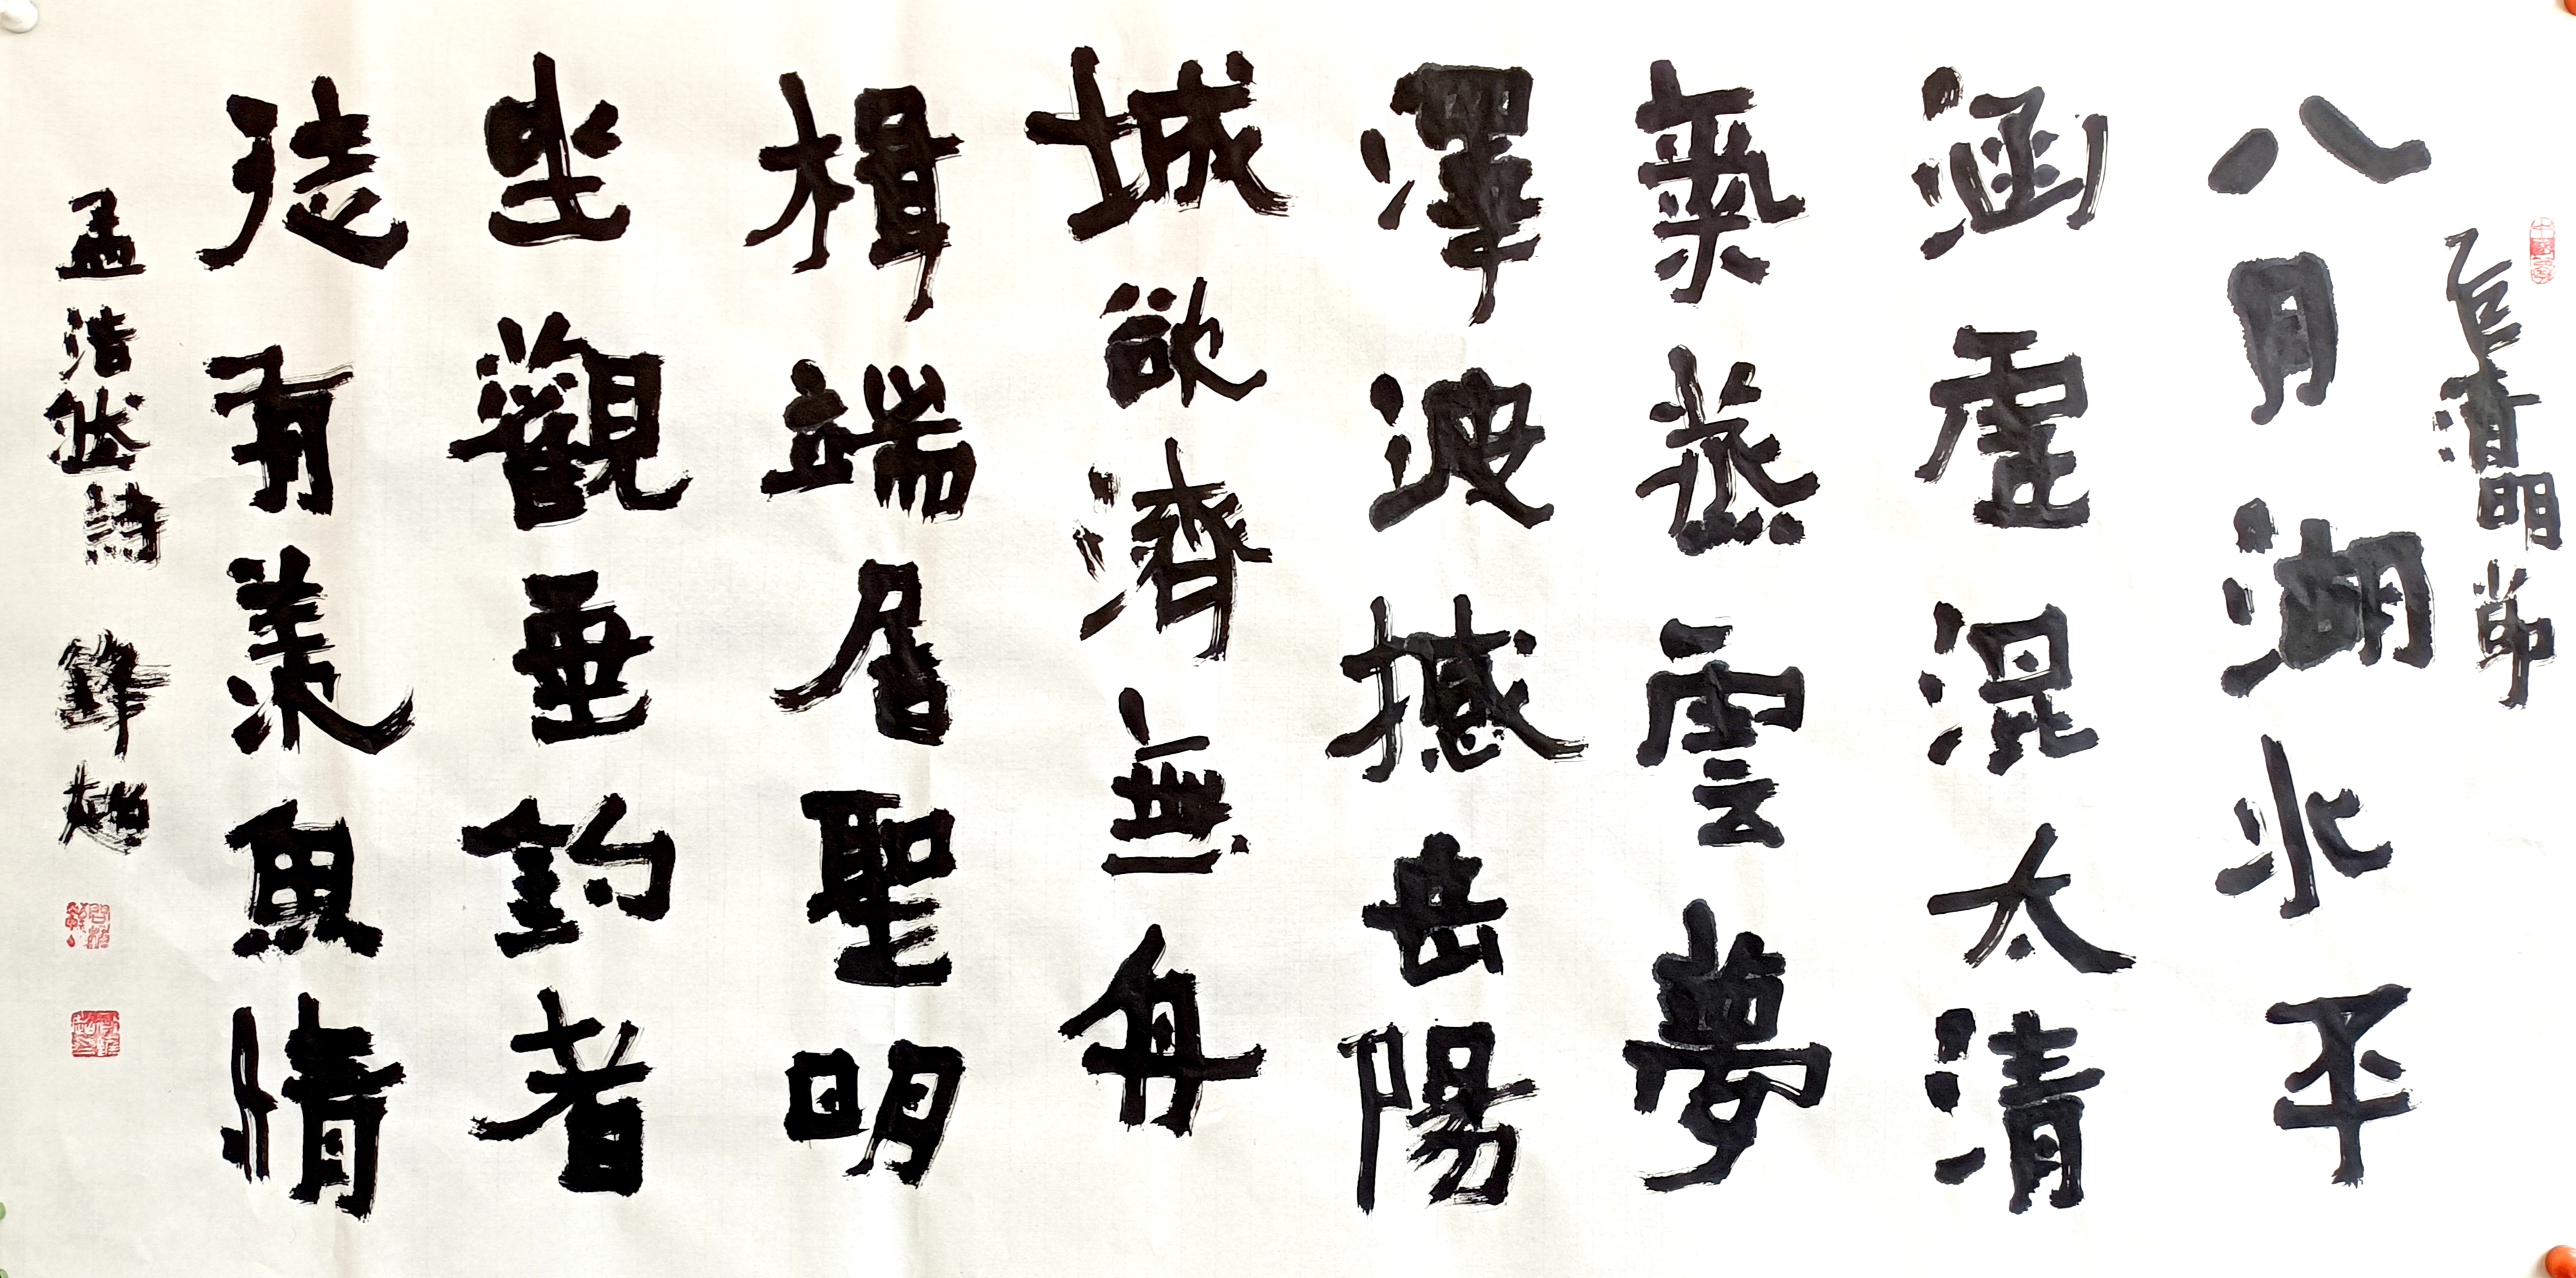 乙巳清明節
八月湖水平
涵虛混太清
氣蒸雲夢
澤波撼岳陽
城欲濟無舟
楫端居聖明
坐觀垂釣者
徒有羨魚情
孟浩然詩 鋒超